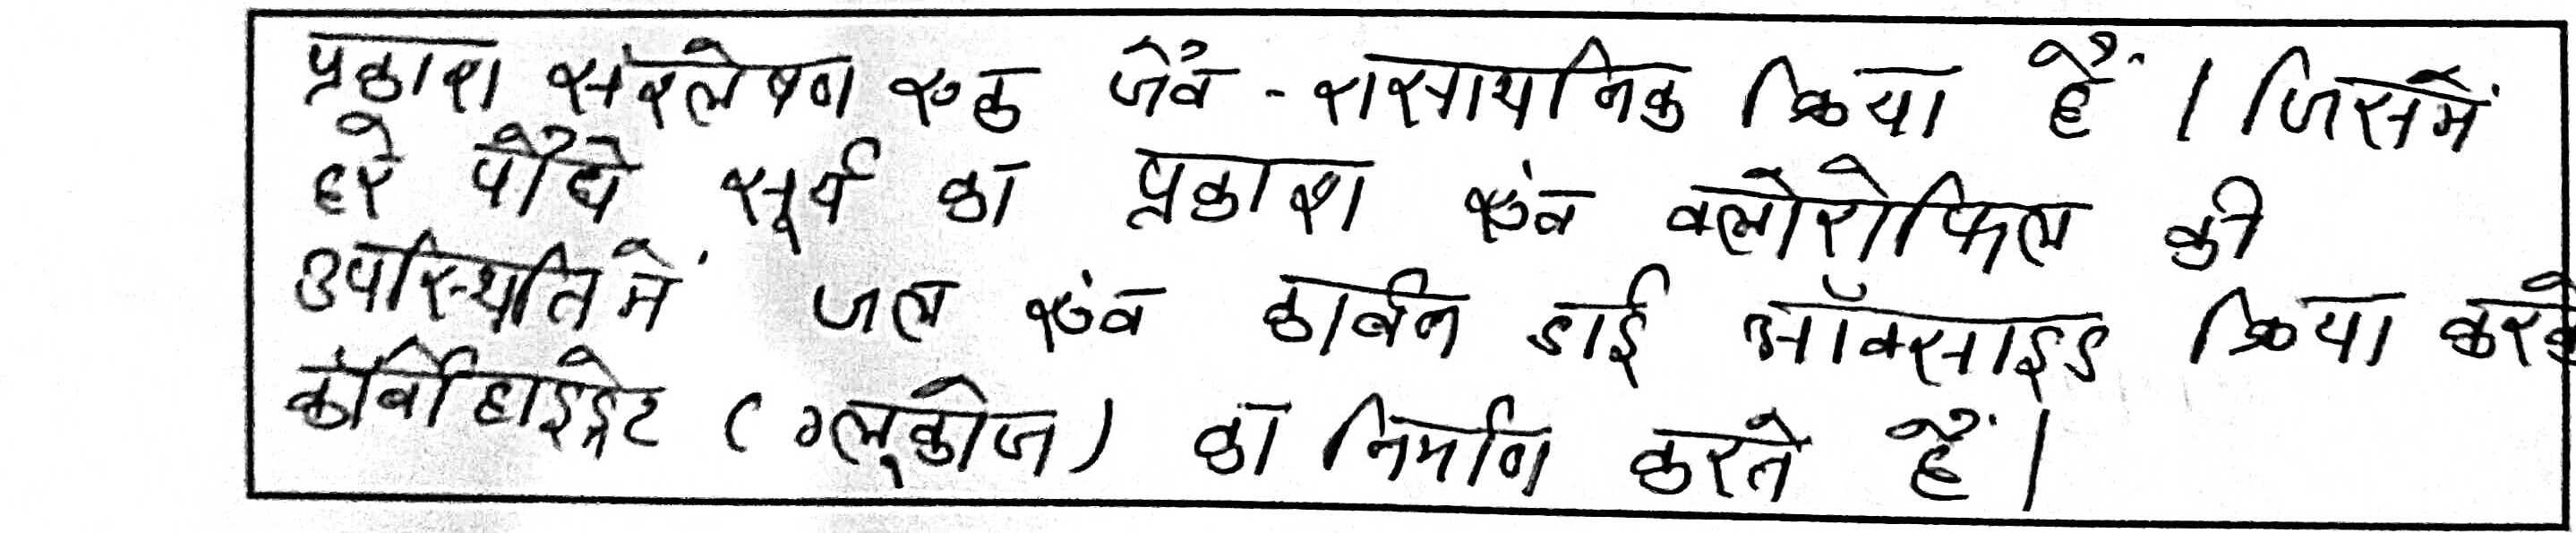 प्रकाश संश्लेषण एक जैव - रासायनिक क्रिया हैं । जिसमें
हरे पौधे सूर्य का प्रकाश एंव क्लोरोफिल की
उपस्थिति में जल एंव कार्बन डाई ऑक्साइड क्रिया करके
कॉर्बोहाइड्रेट ( ग्लूकोज ) का निर्माण करते हैं ।